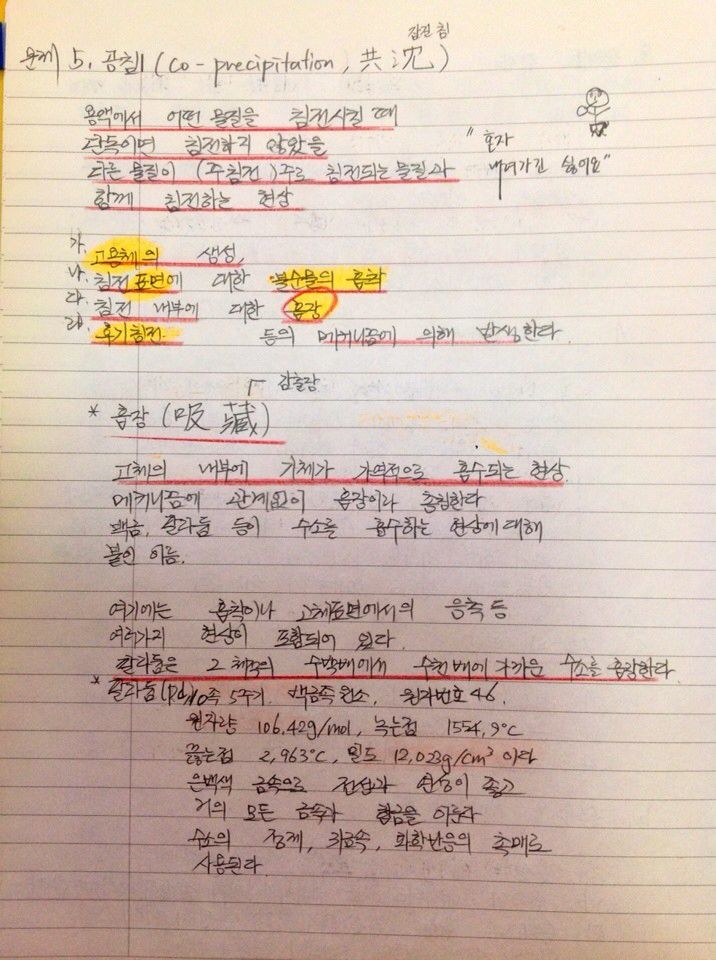 잠길 침
문제 5. 공침 (co-precipitation, 共沈)
용액에서 어떤 물질을 침전시킬 때
단독이면 침전하지 않았을
다른 물질이 (주침전)주로 침전되는 물질과
함께 침전하는 현상
"혼자
내려가긴 싫어요"
가. 고용체의 생성,
나. 침전표면에 대한 불순물의 흡착
다. 침전 내부에 대한 흡장
라. 후기침전 등의 메커니즘에 의해 발생한다.
감출장
* 흡장 (吸藏)
고체의 내부에 기체가 가역적으로 흡수되는 현상.
메커니즘에 관계없이 흡장이라 총칭한다
백금, 팔라듐 등이 수소를 흡수하는 현상에 대해
붙인 이름.
여기에는 흡착이나 고체표면에서의 응축 등
여러가지 현상이 포함되어 있다.
팔라듐은 그 체적의 수백배에서 수천배에 가까운 수소를 흡장한다.
* 팔라듐(Pd) 10족 5주기. 백금족 원소, 원자번호 46.
원자량 106.42g/mol, 녹는점 1554.9°C
끓는점 2,963°C, 밀도 12.023g/cm³ 이다
은백색 금속으로 전성과 연성이 좋고
거의 모든 금속과 합금을 이룬다
수소의 정제, 귀금속, 화학반응의 촉매로
사용된다.